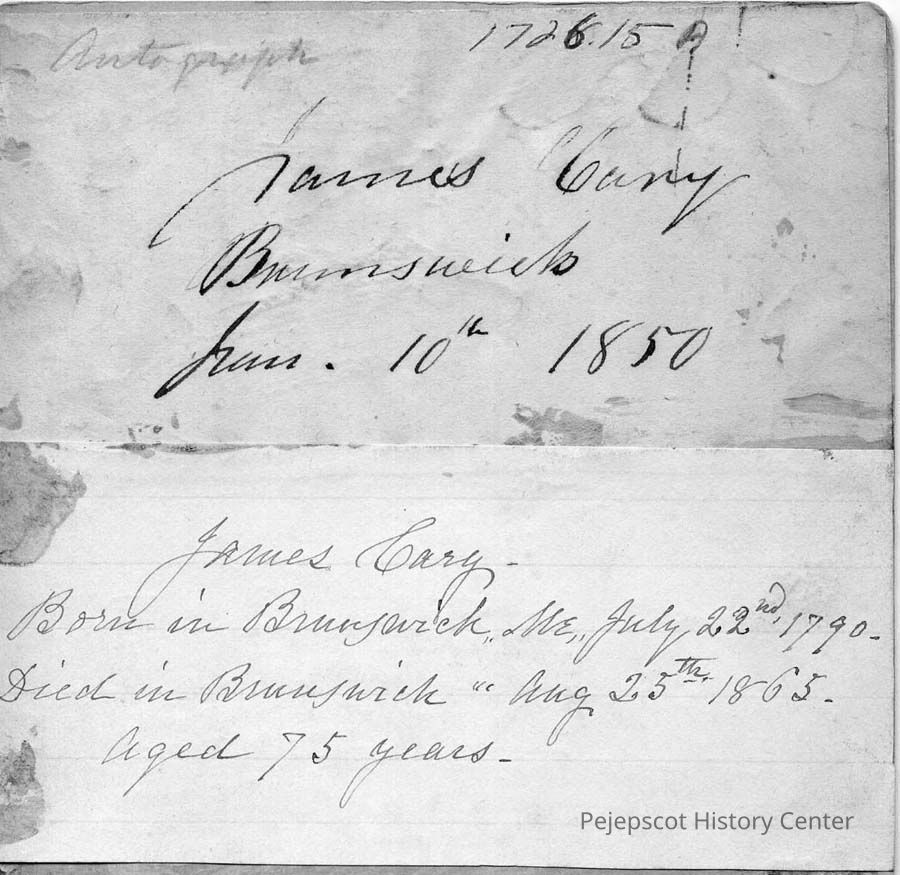 Autograph
1726.15
James Cary
Brunswick
Jan. 10th 1850
James Cary -
Born in Brunswick, Me, July 22nd, 1790 -
Died in Brunswick " Aug 25th 1865 -
Aged 75 years -
Pejepscot History Center